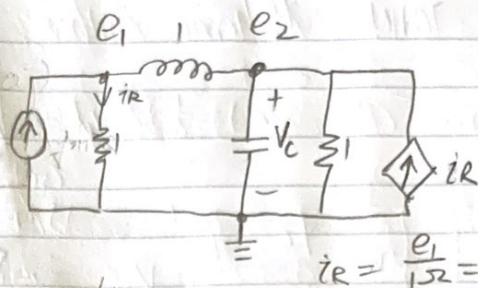 e₁ 1 e₂
iR
1 + Vc − 1 iR
iR = e₁/1Ω =